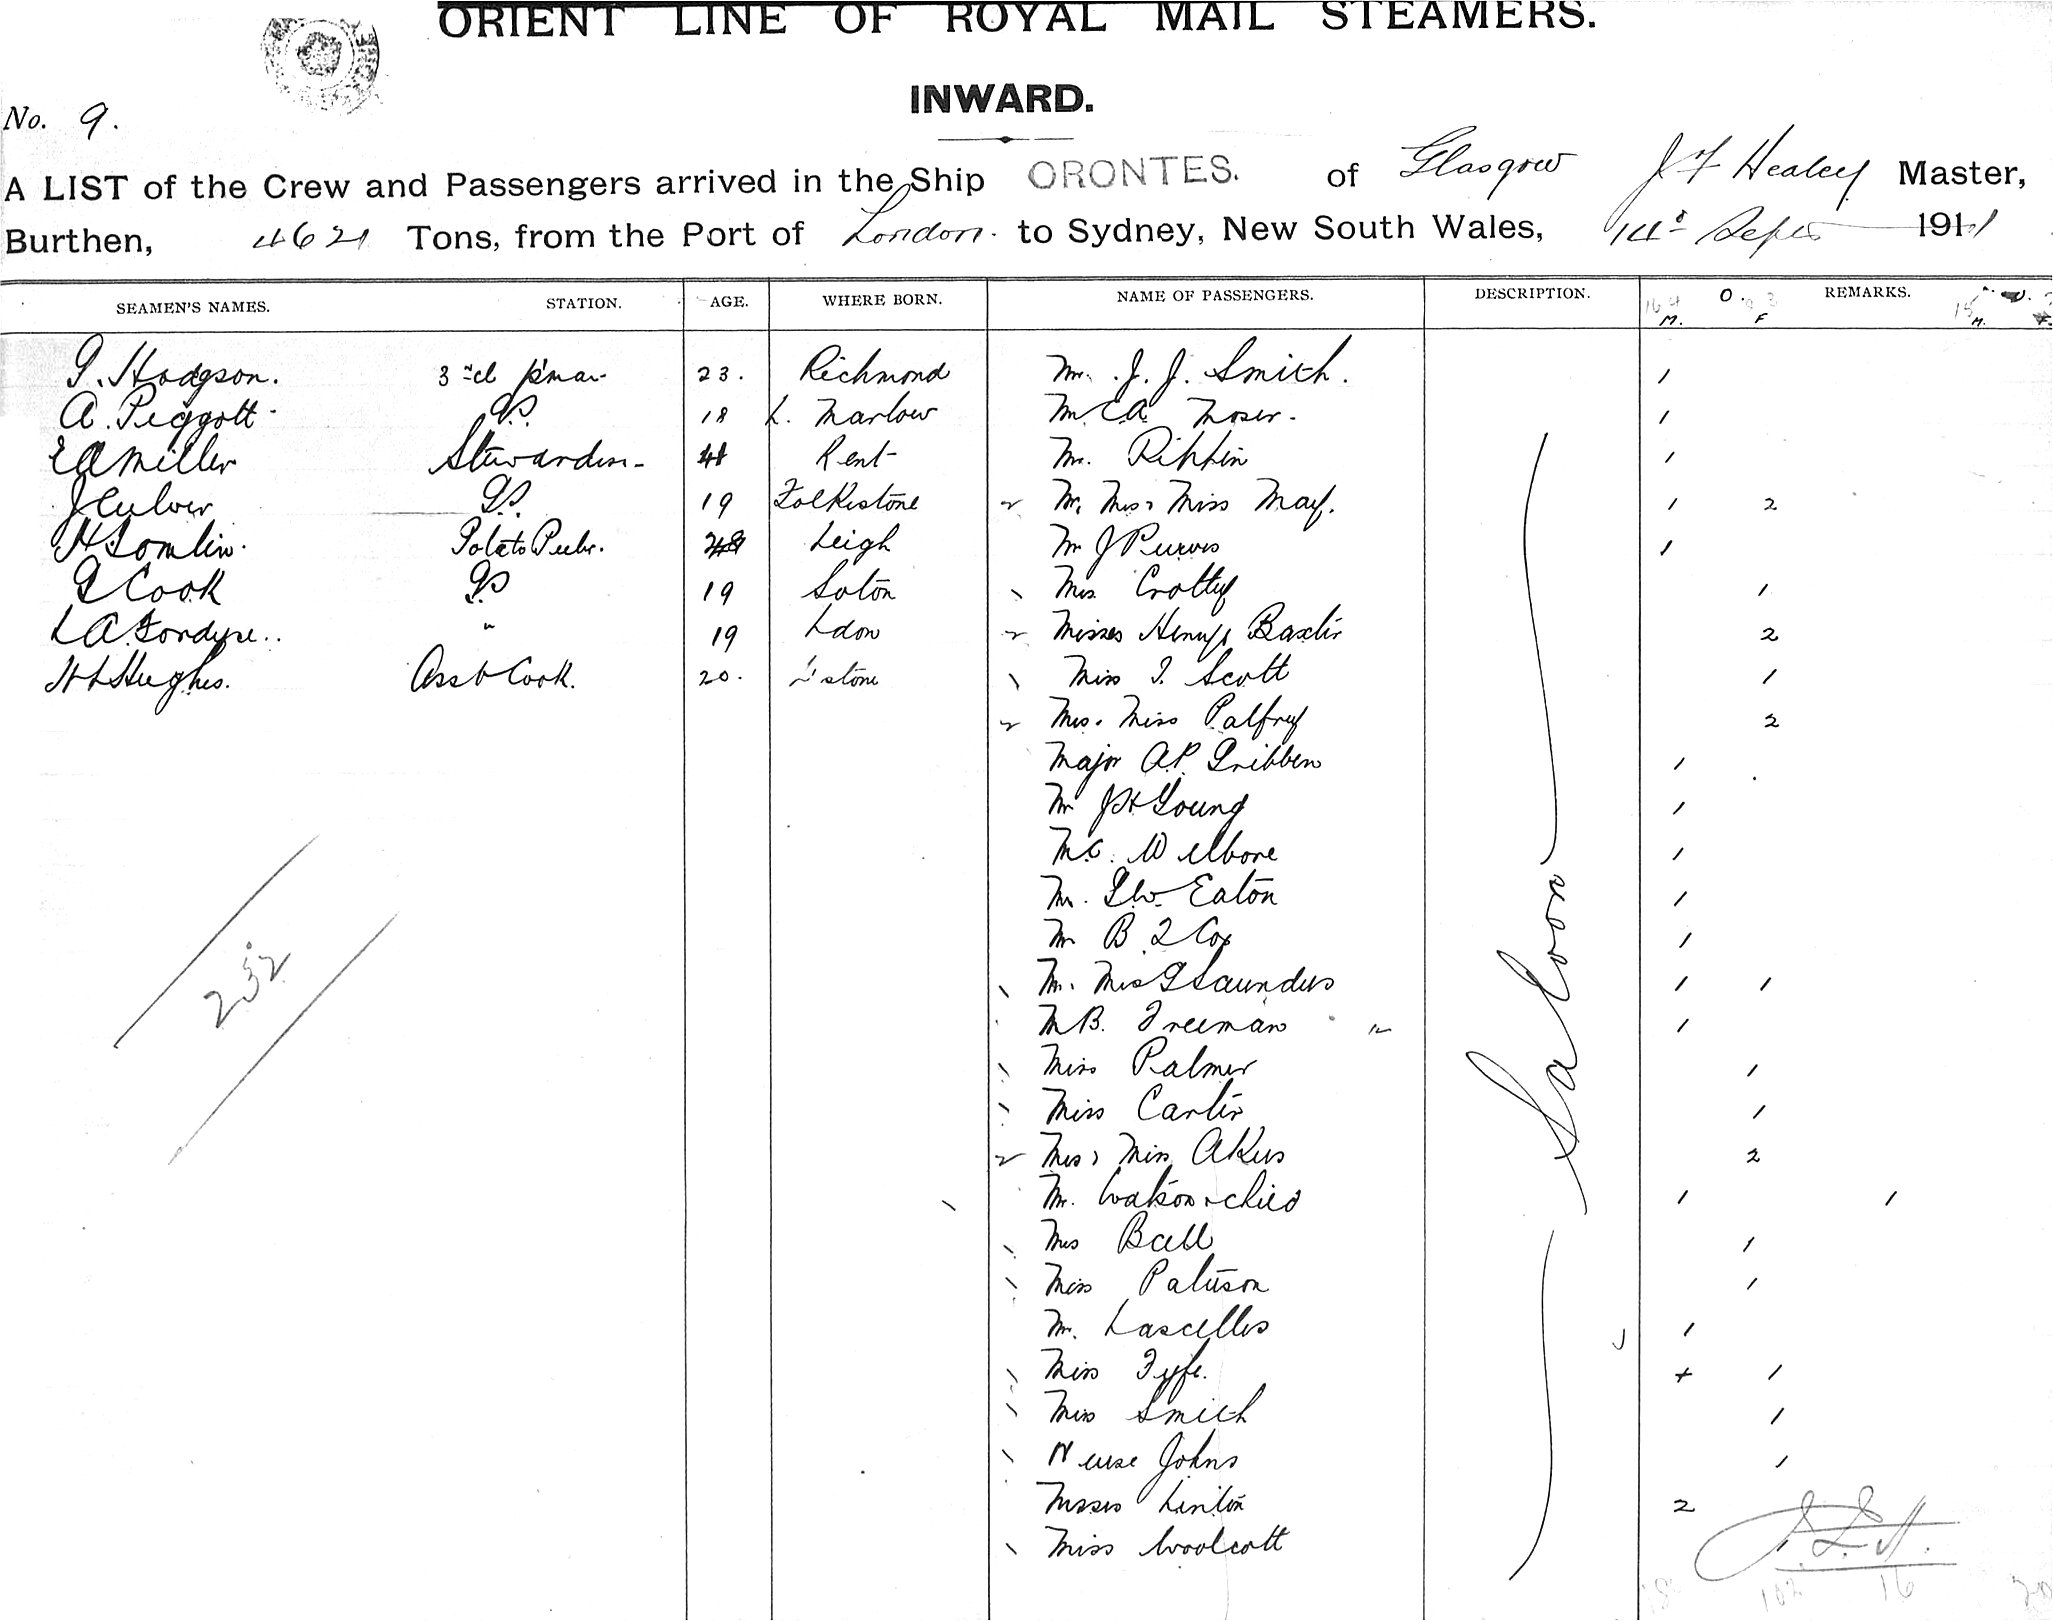 ORIENT LINE OF ROYAL MAIL STEAMERS.
INWARD.
No. 9.
A LIST of the Crew and Passengers arrived in the Ship ORONTES. of Glasgow J F Healey Master,
Burthen, 4621 Tons, from the Port of London. to Sydney, New South Wales, 14th Septr 1911
SEAMEN'S NAMES. STATION. AGE. WHERE BORN. NAME OF PASSENGERS. DESCRIPTION. O. REMARKS.
M. F M. F.
G. Hodgson. 3rd 23. Richmond Mr. J. J. Smith. 1
A. Peggott Do. 18 L. Marlow Mr C A Moser. 1
E A Miller Stewardess 41 Kent Mr. Rippin 1
J Culver Do. 19 Folkestone Mr, Mrs & Miss May. 1 2
H Tomlin. Potato Peelr. Leigh Mr J Purves 1
G Cook Do 19 Soton Mrs Crotty 1
L A Fordyce.. " 19 Ldon Misses Henry & Baxter 2
H L Hughes. Asst Cook. 20. L'stone Miss I. Scott 1
Mrs & Miss Palfrey 2
Major A.P. Gribben 1
Mr J H Young 1
Mr C. Welbore 1
Mr. G W. Eaton 1
Mr B Cox 1
Mr. Mrs G Saunders 1 1
Mr B. Freeman 1
Miss Palmer 1
Miss Carter 1
Mrs & Miss Akers 2
Mr. Watson & child 1 1
Mrs Ball 1
Miss Paterson 1
Mr. Lascelles 1
Miss Fyfe. 1
Miss Smith 1
Nurse Johns 1
Misses Linton 2
Miss Woolcott
Saloon
232
16